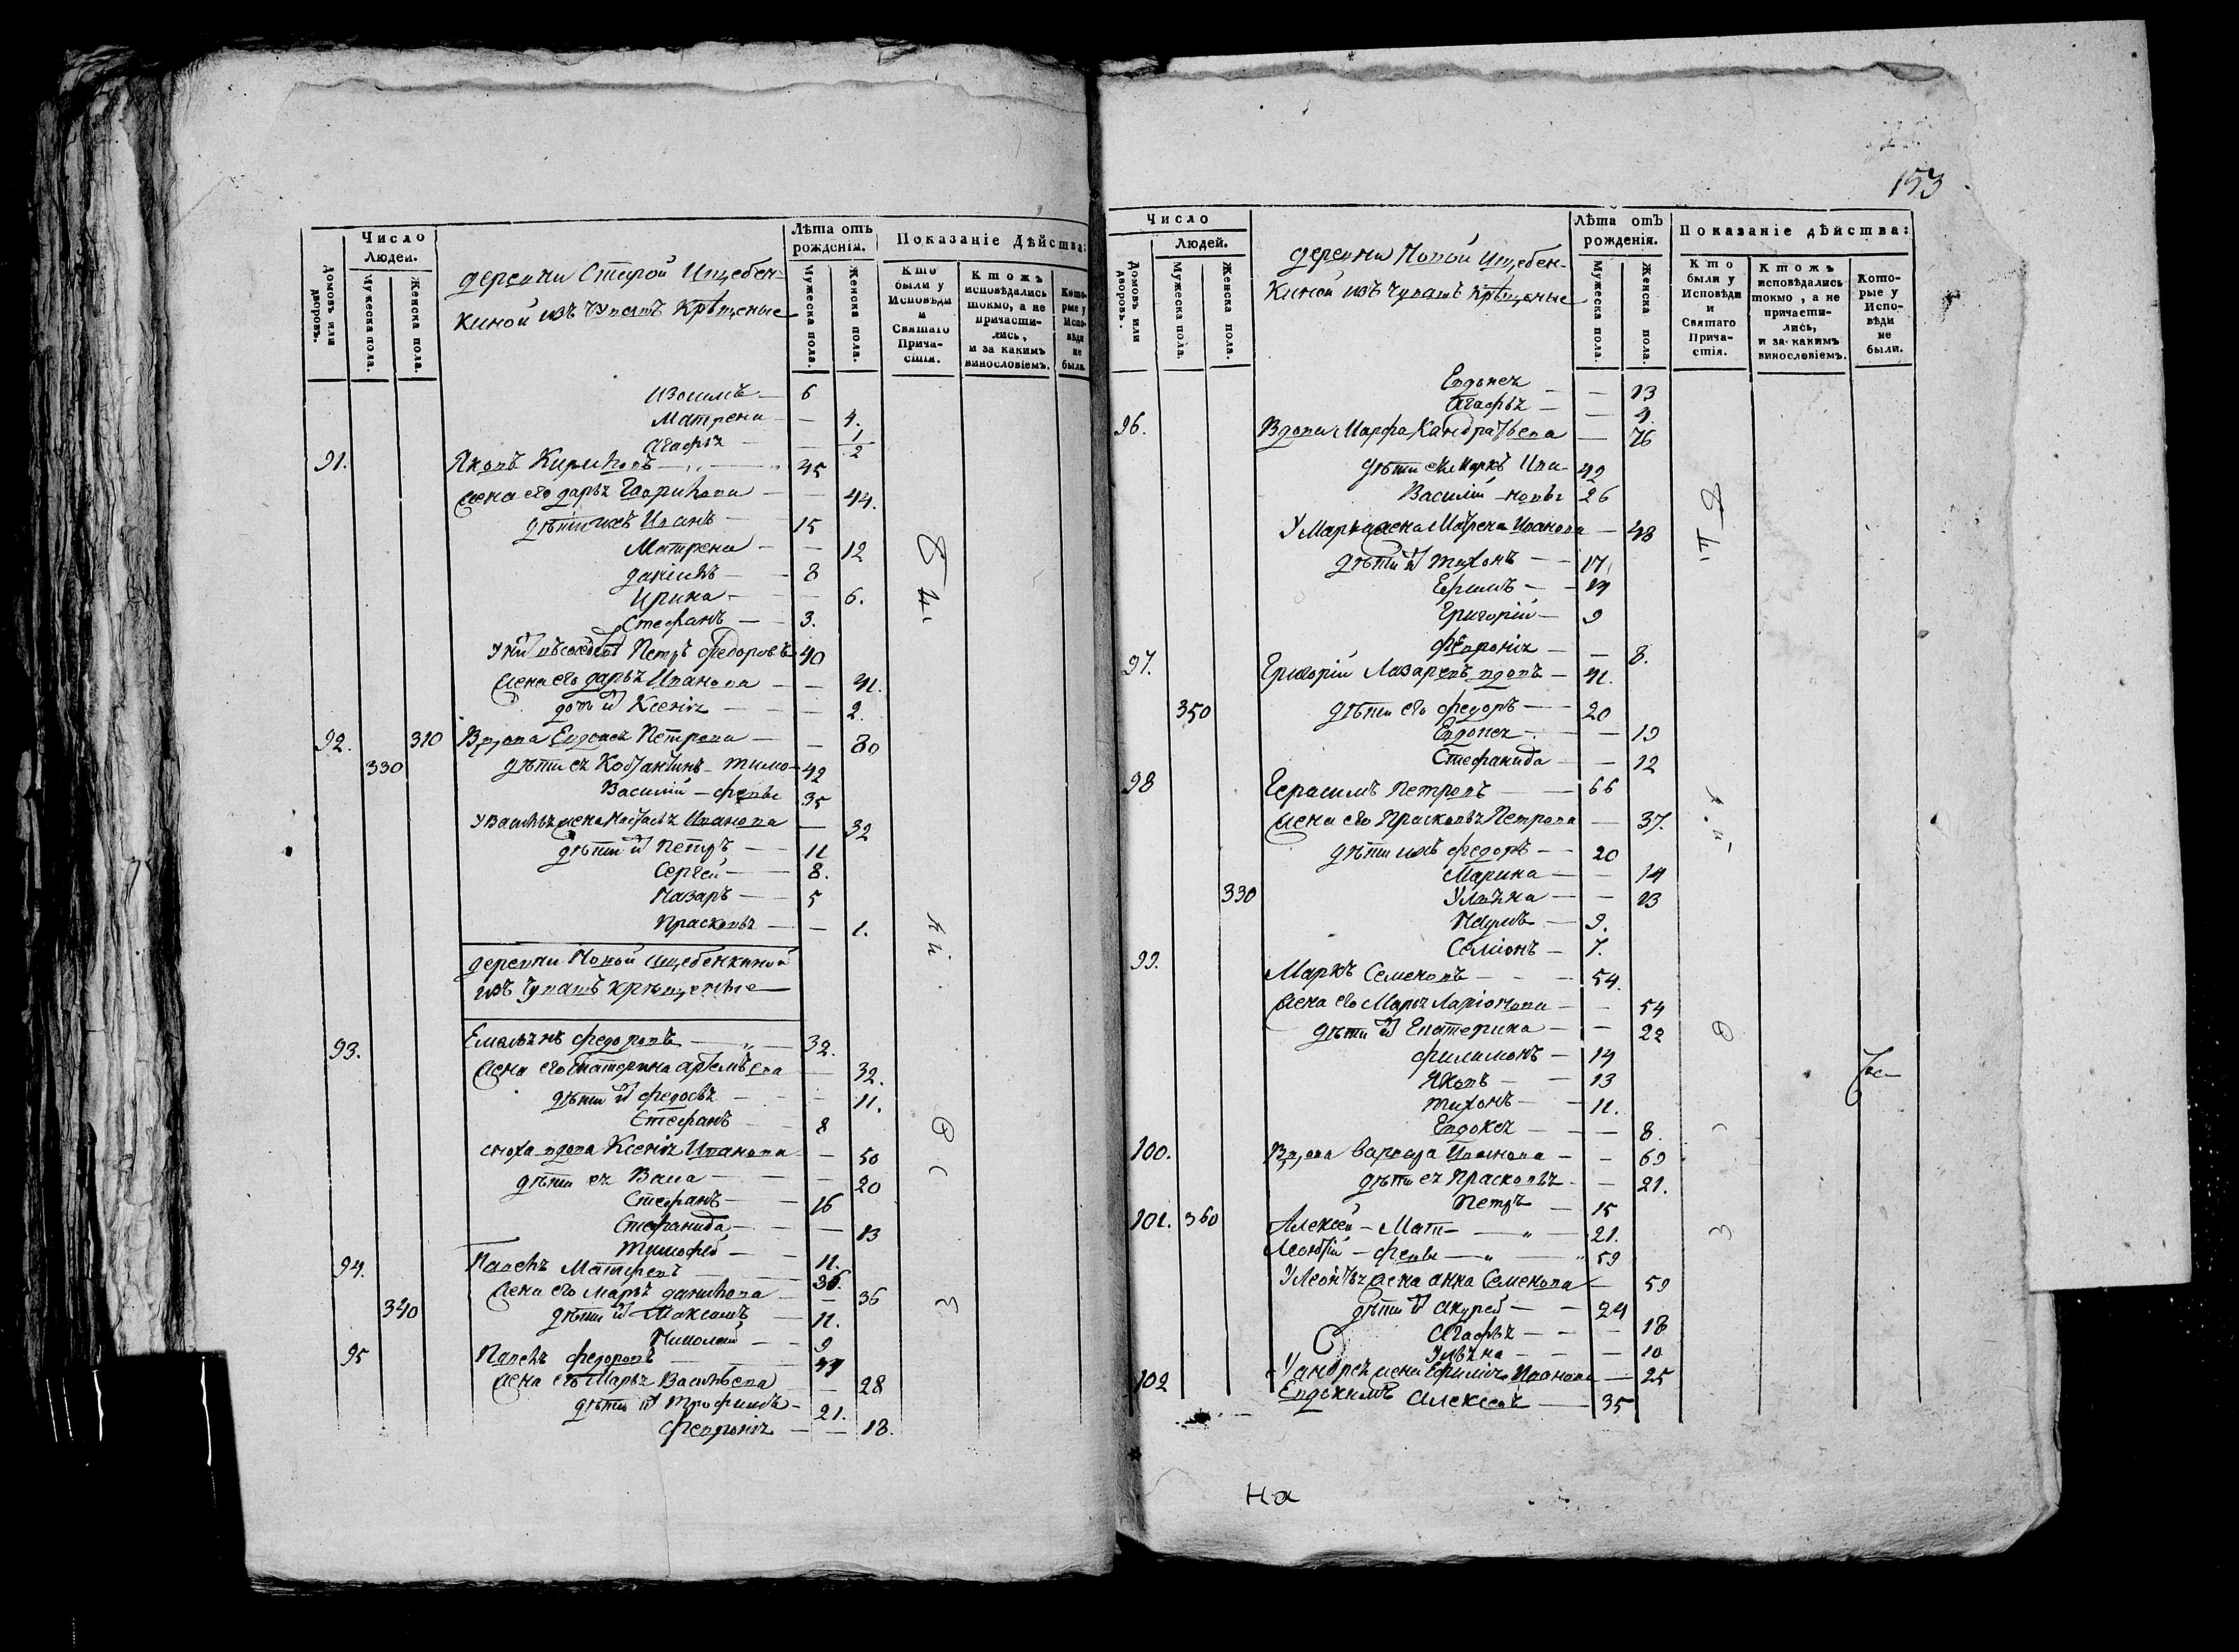 Число
Людей.
Домовъ или дворовъ.
Мужеска пола.
Женска пола.
деревни Старой Ищебен-
киной изъ Чувашъ Крѣщеные
Лѣта отъ рожденія.
Мужеска пола.
Женска пола.
Показаніе Дѣйства:
Кто были у Исповѣди и Святаго Прича-стія.
Ктожъ исповѣдались токмо, а не причасти-лись, и за какимъ винословіемъ.
Кото-рые у Испо-вѣди не были.
Изосимъ — 6
Матрена — — 4.
Агафья — —
91. Яковъ Кириловъ — 45
жена его дарья Гаврилова — — 44.
дѣти ихъ Иванъ — 15
Матрена — — 12
даніилъ — 8
Ирина — — 6.
Стефанъ — 3.
Петръ Федоровъ 40
жена его дарья Иванова — — 41.
Ксенія — — 2.
92. 310 Вдова Евдокея Петрова — — 80
330 дѣти ея Костантинъ — Тимо- 42
Василій — феевы 35
У Василья жена Наталья Иванова — 32
дѣти Петръ — 11
Сергей — 8.
Назаръ — 5
Прасковья — — 1.
деревни Новой Ищебенкиной
изъ Чувашъ крѣщеные
93. Емельянъ Федоровъ — 32.
жена его Екатерина Артемьева — 32.
дѣти Федосья — — 11.
Стефанъ — 8
сноха вдова Ксенія Иванова — 50
дѣти ея Васа — — 20
Стефанъ — 16
Стефанида — — 13
Тимофей — 11.
94. Павелъ Матфеевъ — 36.
жена его Марья данилова — — 36
340 дѣти Максимъ — 11.
Николай — 9
95 Павелъ Федоровъ — 44
жена его Марья Васильева — 28
дѣти Трофимъ — 21.
Феврония — — 18.
153
Число
Людей.
Домовъ или дворовъ.
Мужеска пола.
Женска пола.
деревни Новой Ищебен-
киной изъ Чувашъ Крѣщеные
Лѣта отъ рожденія.
Мужеска пола.
Женска пола.
Показаніе дѣйства:
Кто были у Исповѣди и Святаго Прича-стія.
Ктожъ исповѣдались токмо, а не причасти-лись, и за какимъ винословіемъ.
Кото-рые у Испо-вѣди не были.
Евдокея — — 13
Агафья — — 4.
96. Вдова Марфа Кандратьева — 76
дѣти ея Маркъ Ива- 42
Василій — новы 26
У Марка жена Матрена Иванова — 48
дѣти Тихонъ — 17
Ефимъ — 14
Григорій — 9
Февронія — — 8.
97. Григорій Лазаревъ вдовъ — 41.
350 дѣти его Федоръ — 20
Евдокея — — 19
Стефанида — — 12
98 Герасимъ Петровъ — 66
жена его Прасковья Петрова — 37.
дѣти ихъ Федоръ — 20
Марина — — 14
330 Ульяна — — 13
Наумъ — 9.
Семіонъ — 7.
99. Маркъ Семеновъ — 54.
жена его Марья Ларіонова — — 54
дѣти Екатерина — — 22
Филимонъ — 14
Яковъ — 13
Тихонъ — 11.
Евдокея — — 8.
100. Вдова Варвара Иванова — — 69
дѣти ея Прасковья — — 21.
Петръ — 15
101. 360 Алексей — Мат- — 21.
Леонтій — феевы — 59
У Леонтья жена Анна Семенова — 59
дѣти Андрей — 24
Агафья — — 18
Ульяна — — 10
У Андрея жена Ефимія Иванова — 25
102 Евдокимъ Алексеевъ — 35
на